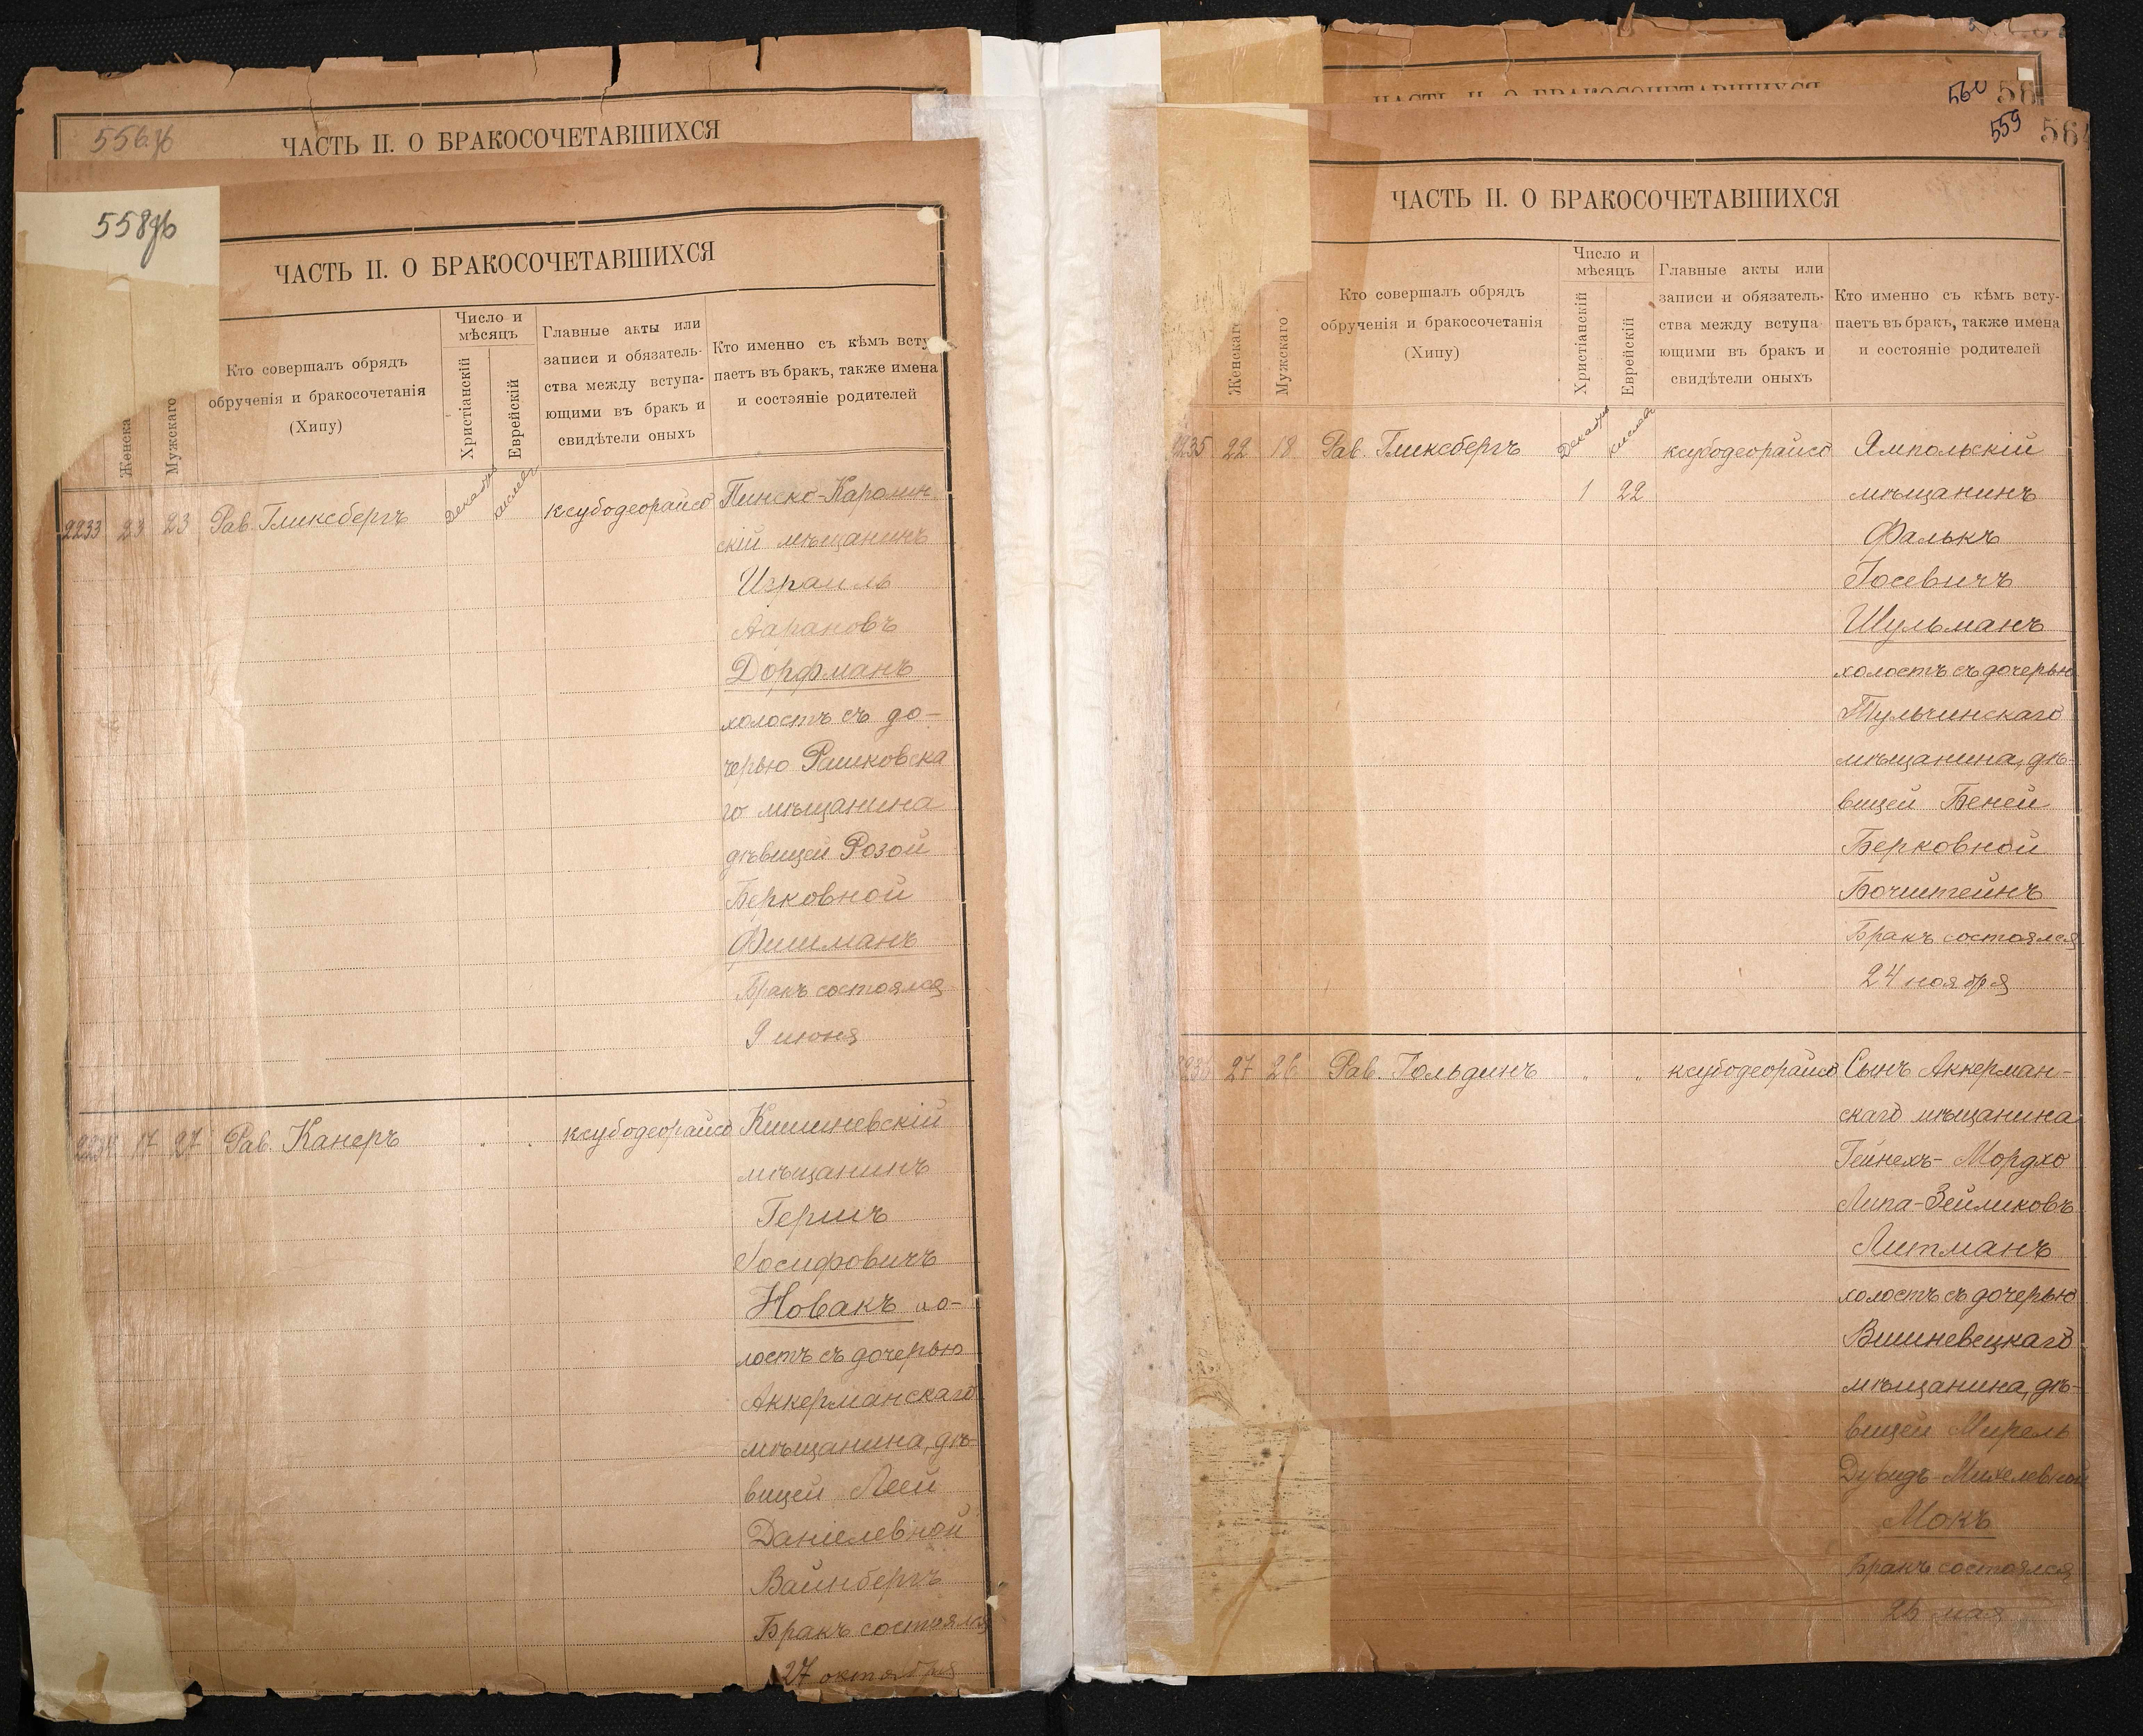 556об
ЧАСТЬ II. О БРАКОСОЧЕТАВШИХСЯ
558об
ЧАСТЬ II. О БРАКОСОЧЕТАВШИХСЯ
Женска
Мужскаго
Кто совершалъ обрядъ
обрученія и бракосочетанія
(Хипу)
Число и
мѣсяцъ
Христіанскій
Еврейскій
Главные акты или
записи и обязатель-
ства между вступа-
ющими въ бракъ и
свидѣтели оныхъ
Кто именно съ кѣмъ всту
паетъ въ бракъ, также имена
и состояніе родителей
2233 23 23 Рав. Гликсбергъ Декабрь кислевъ ксубодеорайсо Пинско-Каролин
скій мѣщанинъ
Израиль
Аароновъ
Дорфманъ
холостъ съ до-
черью Рашковска
го мѣщанина
дѣвицей Розой
Берковной
Фишманъ
Бракъ состоялся
9 июня
2234 17 27 Рав. Канеръ " " ксубодеорайсо Кишиневскій
мѣщанинъ
Гершъ
Іосифовичъ
Новакъ хо-
лостъ съ дочерью
Аккерманскаго
мѣщанина, дѣ-
вицей Леей
Даніелевной
Вайнбергъ
Бракъ состоялся
27 октября
ЧАСТЬ II. О БРАКОСОЧЕТАВШИХСЯ
560 56
559 56
ЧАСТЬ II. О БРАКОСОЧЕТАВШИХСЯ
Женскаго
Мужскаго
Кто совершалъ обрядъ
обрученія и бракосочетанія
(Хипу)
Число и
мѣсяцъ
Христіанскій
Еврейскій
Главные акты или
записи и обязатель-
ства между вступа
ющими въ бракъ и
свидѣтели оныхъ
Кто именно съ кѣмъ всту-
паетъ въ бракъ, также имена
и состояніе родителей
2235 22 18 Рав. Гликсбергъ Декабрь кислевъ ксубодеорайсо Ямпольскій
1 22 мѣщанинъ
Фалькъ
Іосевичъ
Шульманъ
холостъ съ дочерью
Тульчинскаго
мѣщанина, дѣ-
вицей Беней
Берковной
Бочштейнъ
Бракъ состоялся
24 ноября
2236 27 26 Рав. Гольдинъ " " ксубодеорайсо Сынъ Аккерман-
скаго мѣщанина
Гейнехъ-Мордхо
Липа-Зейликовъ
Литманъ
холостъ съ дочерью
Вишневецкаго
мѣщанина, дѣ-
вицей Мирель
Дувидъ-Михелевной
Мокъ
Бракъ состоялся
26 мая